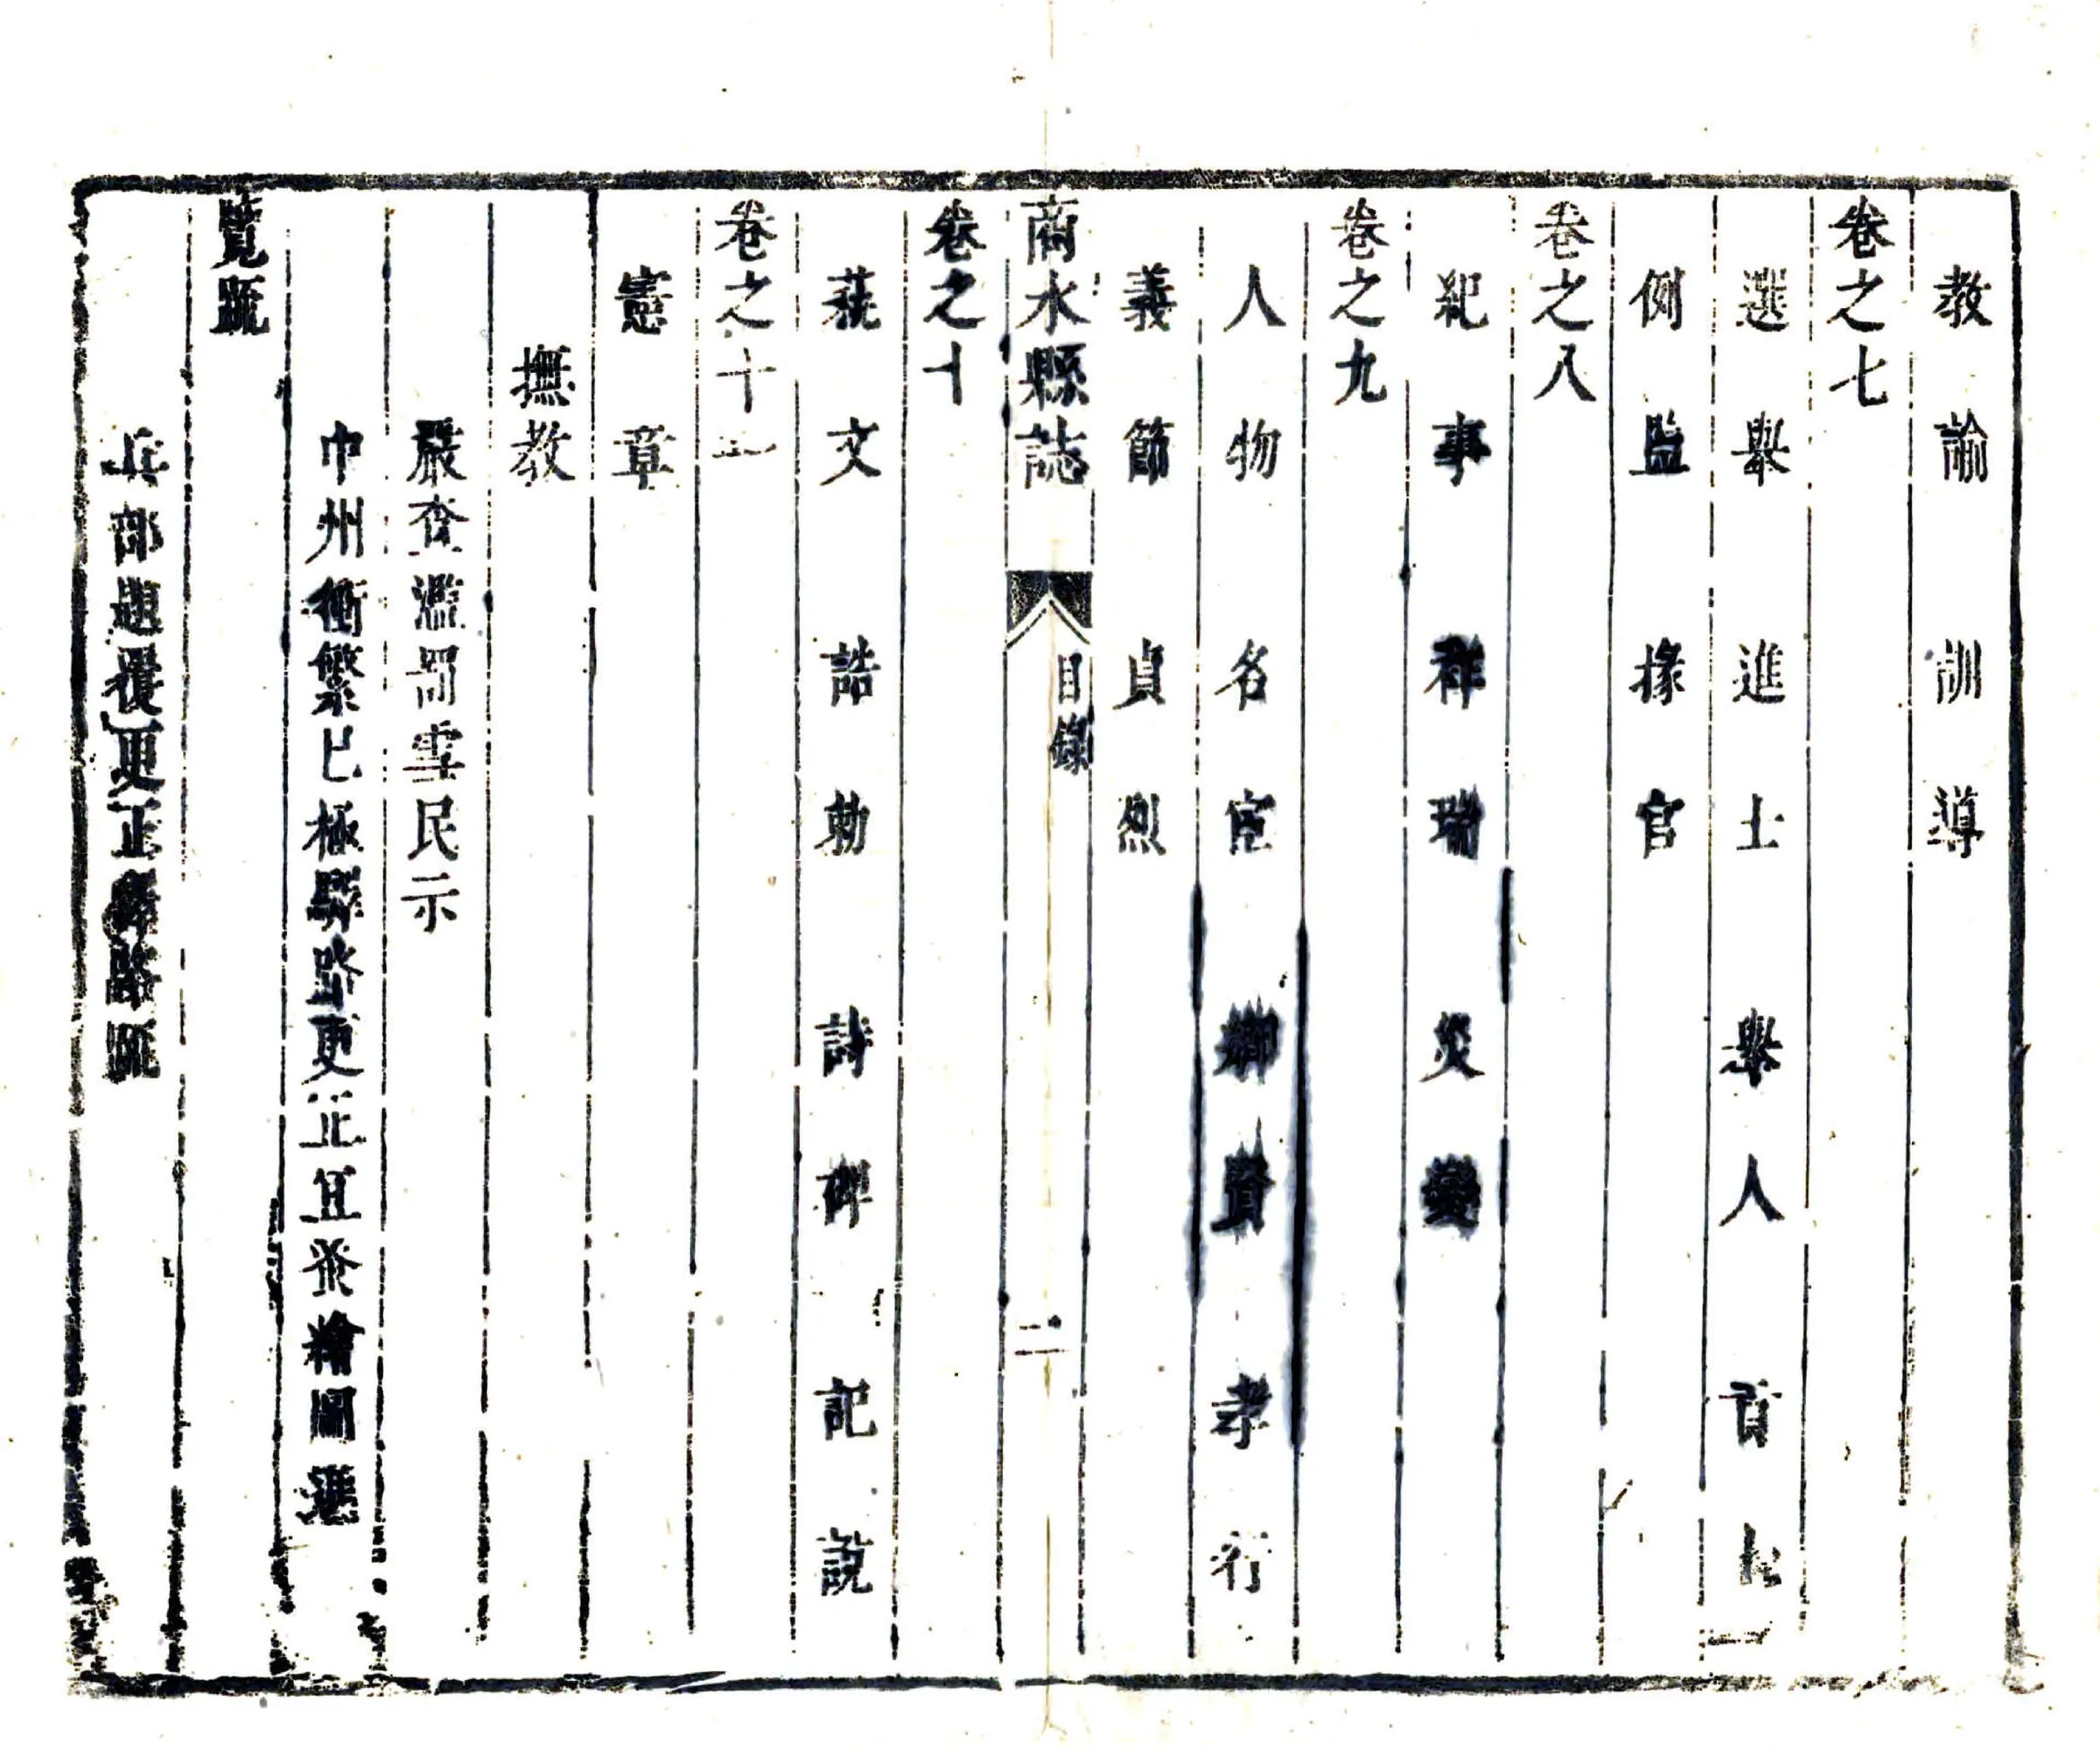 教諭 訓導
卷之七
選舉 進士 舉人 貢士
例監 掾官
卷之八
祀事 祥瑞 災變
卷之九
人物 名宦 鄉賢 孝行
義節 貞烈
商水縣誌 目錄 二
卷之十
蓺文 誥勅 詩碑 記說
卷之十一
憲章
撫教
嚴查濫罰害民示
中州衝繁已極驛路更正宜茶繪圖進
覽疏
兵部題覆更正驛路疏